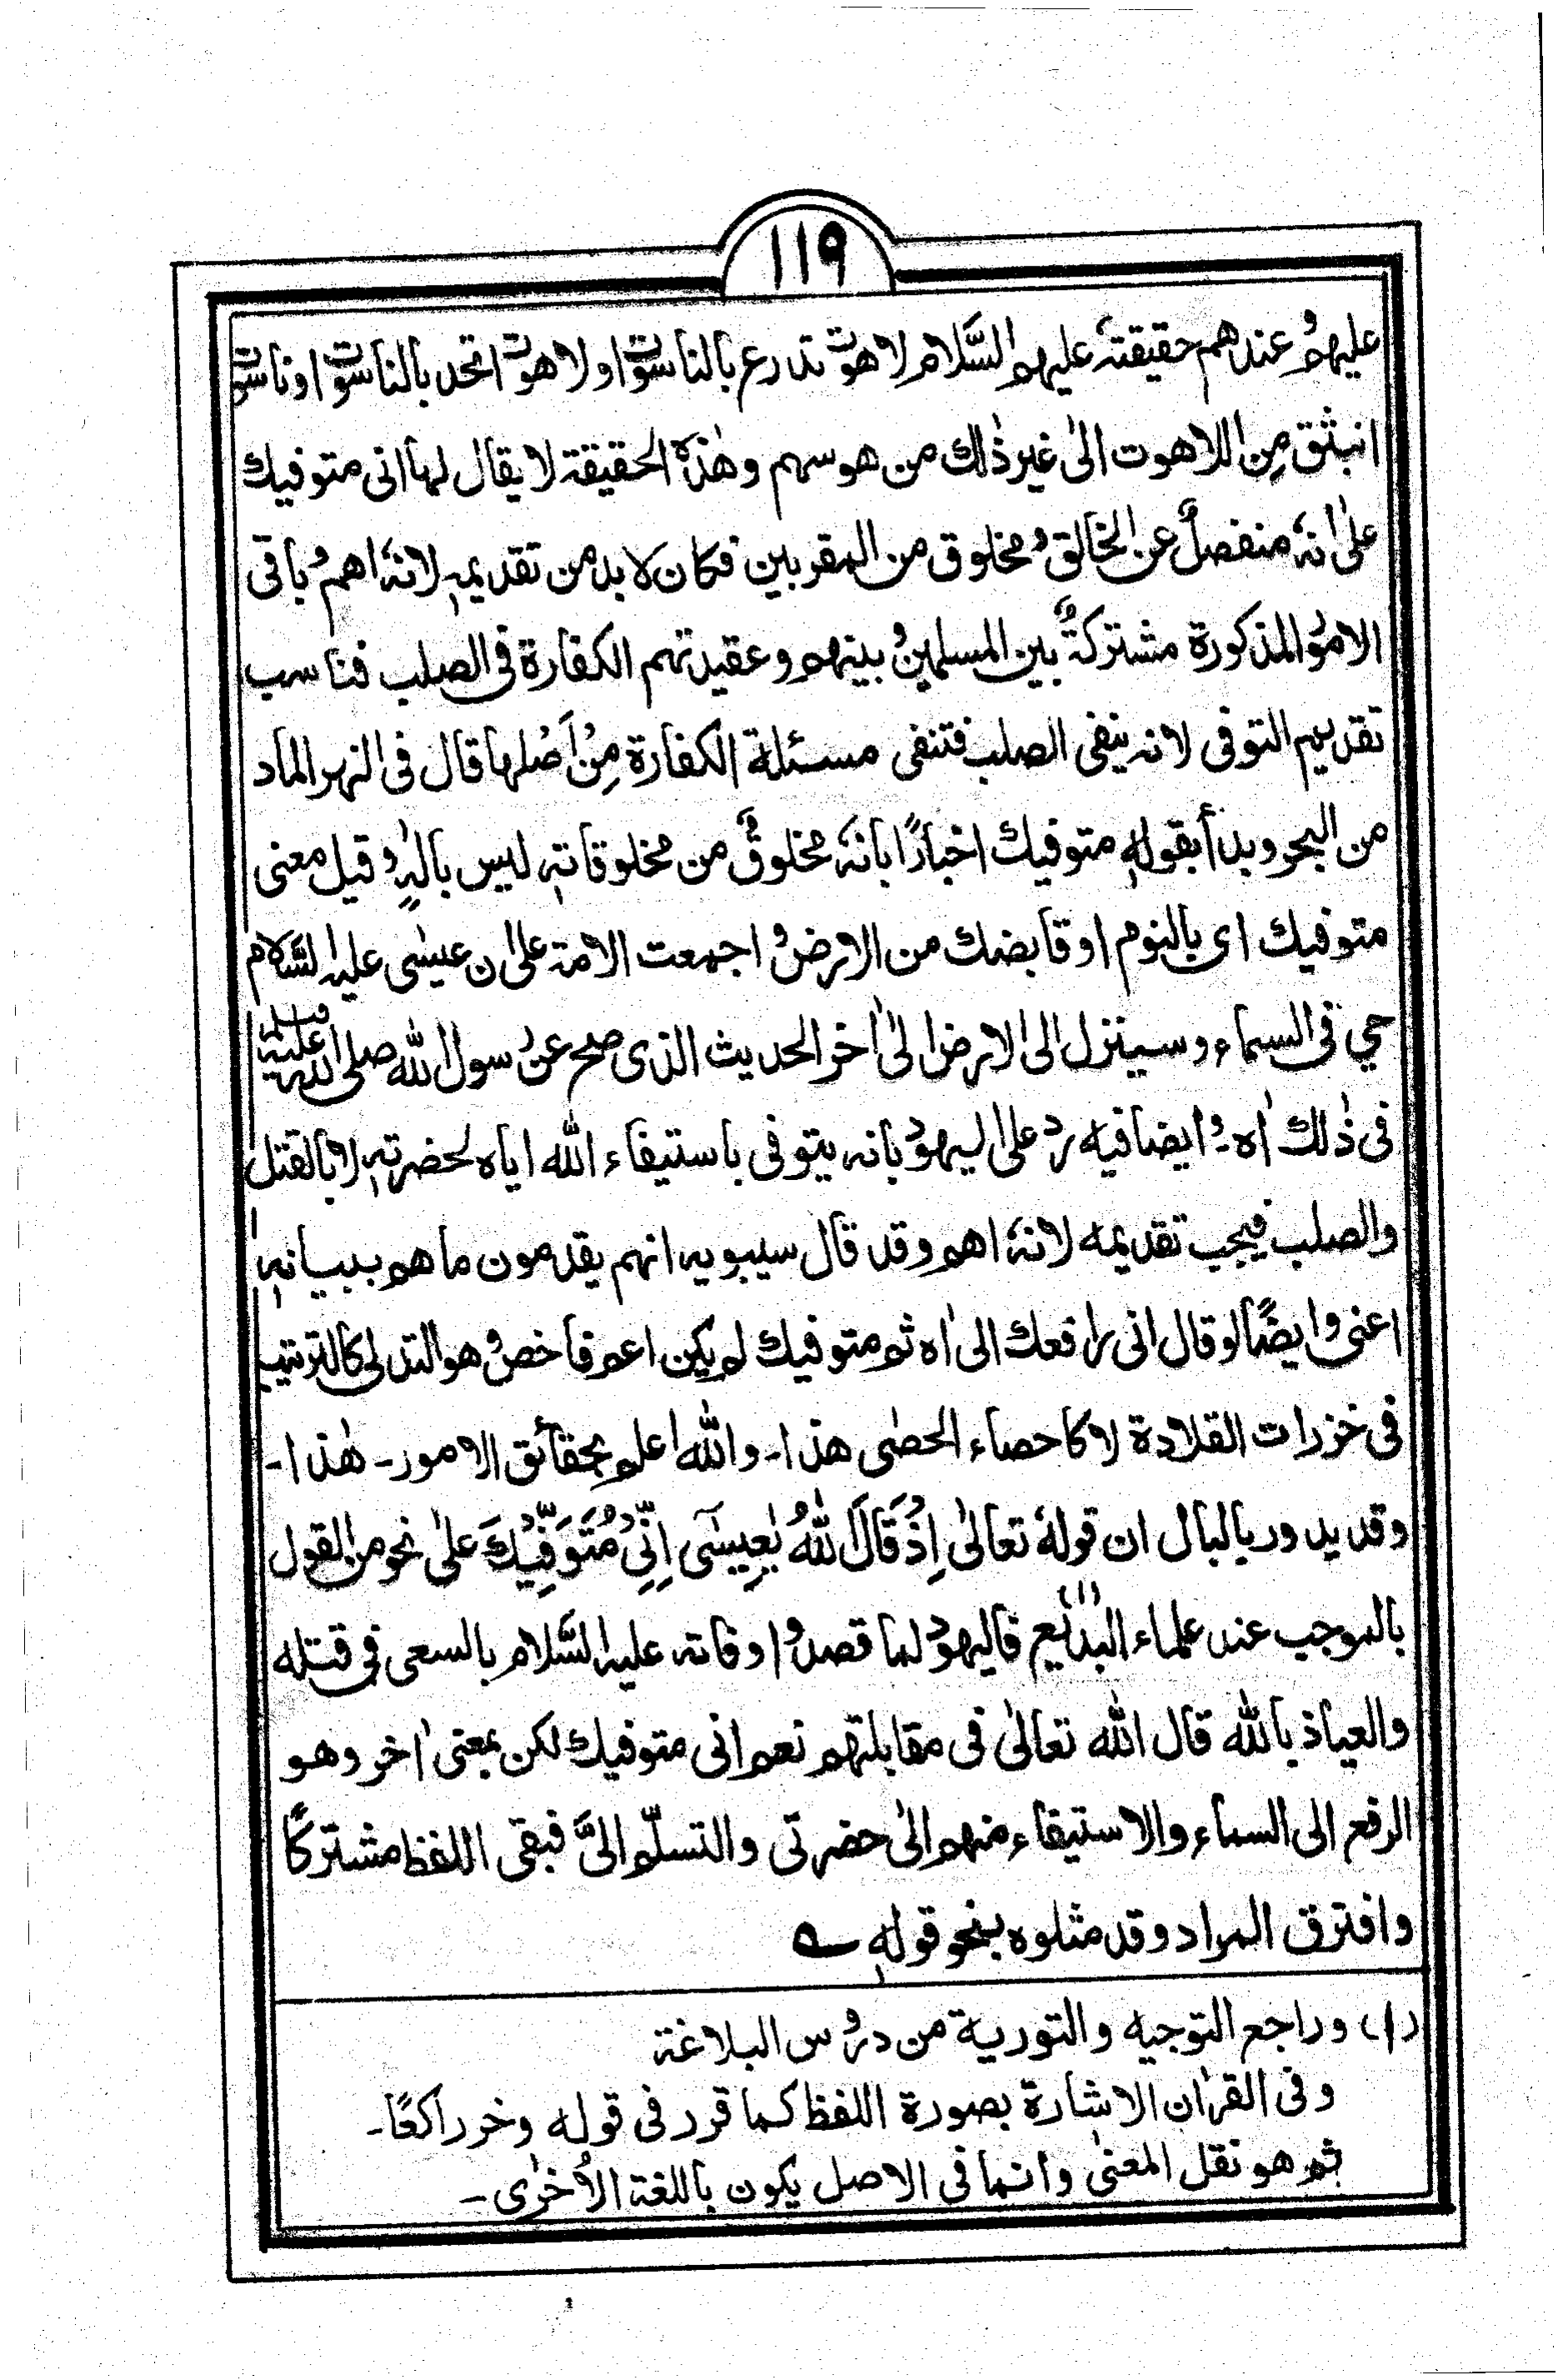 ١١٩
عليهم وعندهم حقيقته عليهم السَّلام لاهوت تدرع بالناسوت اولاهوت اتحد بالناسوت اوناسوت
انبثق مِن اللاهوت الىٰ غير ذٰلك من هوسهم وهٰذه الحقيقة لا يقال لها انى متوفيك
علىٰ انهٗ منفصلٌ عن الخالق ومخلوق من المقربين فكان لابد من تقديمهٖ لانهٗ اهم وباقى
الامور المذكورة مشتركةٌ بين المسلمين وبينهم وعقيدتهم الكفارة فى الصلب فناسب
تقديم التوفى لانه ينفى الصلب فتنفى مسئلة الكفارة مِنْ اَصْلها قال فى النهر الماد
من البحر وبدأ بقولهٖ متوفيك اخبارًا بانهٗ مخلوقٌ من مخلوقاتهٖ ليس بالٰهٍ وقيل معنى
متوفيك اى بالنوم اوقابضك من الارض واجمعت الامة على ان عيسٰى عليه السَّلام
حي فى السماء وسينزل الى الارض الىٰ اٰخر الحديث الذى صح عن رسول الله صلى الله عليه وسلم
فى ذٰلك اٰه ـ وايضا فيه رد على اليهود بانه يتوفى باستيفاء الله اياه لحضرتهٖ لا بالقتل
والصلب فيجب تقديمه لانهٗ اهم وقد قال سيبويه انهم يقدمون ما هم ببيانهٖ
اعنى وايضًا لوقال انى رافعك الىٰ اٰه ثم متوفيك لم يكن اعم فاخص وهو التدلى كالترتيب
فى خزرات القلادة لا كاحصاء الحصٰى هذا ـ والله اعلم بحقائق الامور ـ هٰذا ـ
وقد يدور بالبال ان قولهٗ تعالىٰ اِذْ قَالَ اللّٰهُ يٰعِيسٰٓى اِنِّىْ مُتَوَفِّيْكَ علىٰ نحو من القول
بالموجب عند علماء البدائع (١) فاليهود لما قصدوا وفاته عليه السَّلام بالسعى فى قتله
والعياذ بالله قال الله تعالىٰ فى مقابلتهم نعم انى متوفيك لكن بمعنىٰ اٰخر وهو
الرفع الى السماء والاستيفاء منهم الىٰ حضرتى والتسلّم الىَّ فبقى اللفظ مشتركًا
وافترق المراد وقد مثلوه بنحو قولهٖ ؎
(١) وراجع التوجيه والتورية من دروس البلاغة
وفى القراٰن الاشارة بصورة اللفظ كما قرر فى قوله وخر راكعًا ـ
ثم هو نقل المعنىٰ وانما فى الاصل يكون باللغة الأُخرٰى ـ